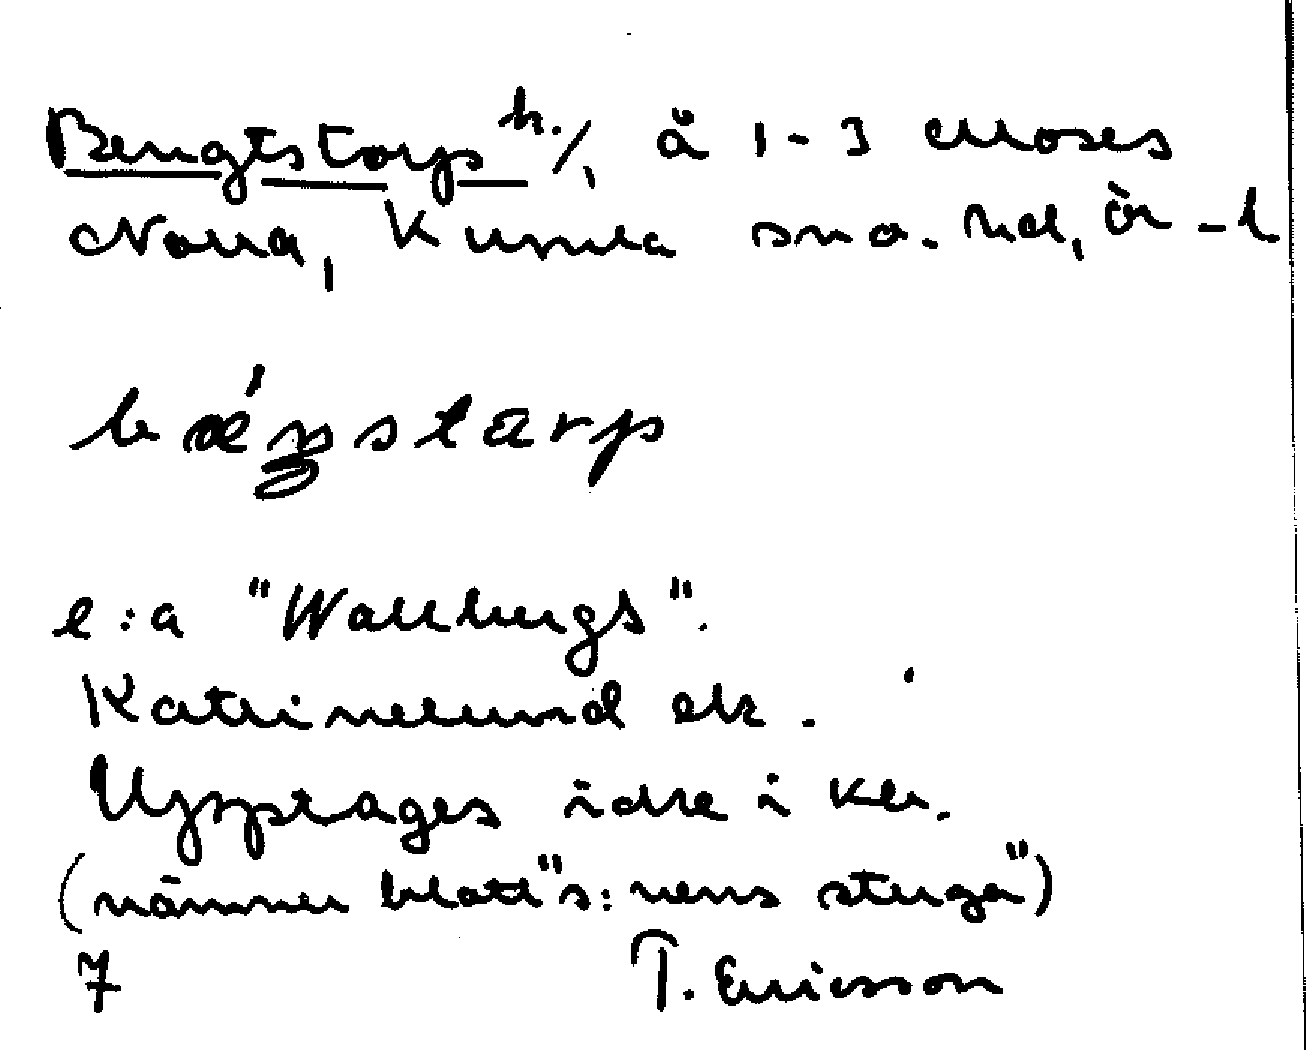 Bengtstorp h./, å 1-3 Mosås
Norra, Kumla sn o. hd, Ör-l
bǽŋstarp
e:a "Wallbergs".
Katrinelund etc.
Upptages icke i ker.
(nämner blott "s:nens stuga")
7 T. Ericsson